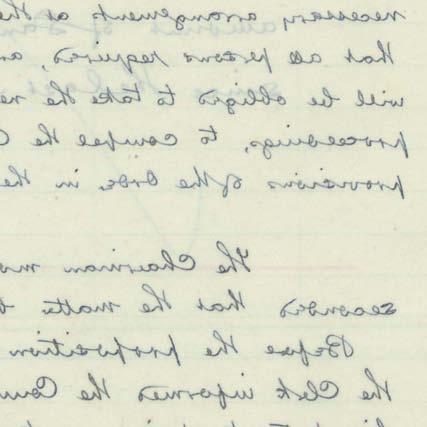 necessary arrangements as
that all persons required,
will be obliged to take the
proceedings, to compel the
provisions of the Order in the
The Chairman
seconded that the matter
Before the proposition
the Clerk informed the